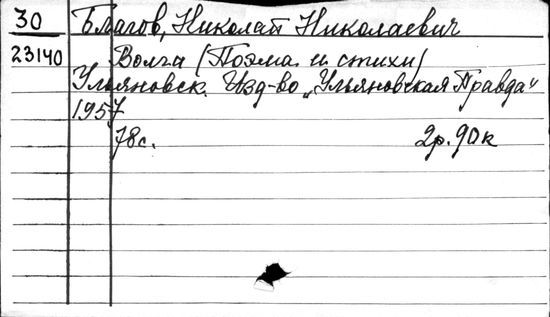 30 Благов, Николай Николаевич
23140 Волга (Поэма и стихи)
Ульяновск. Изд-во „Ульяновская Правда“
1957
78с. 2р. 90к